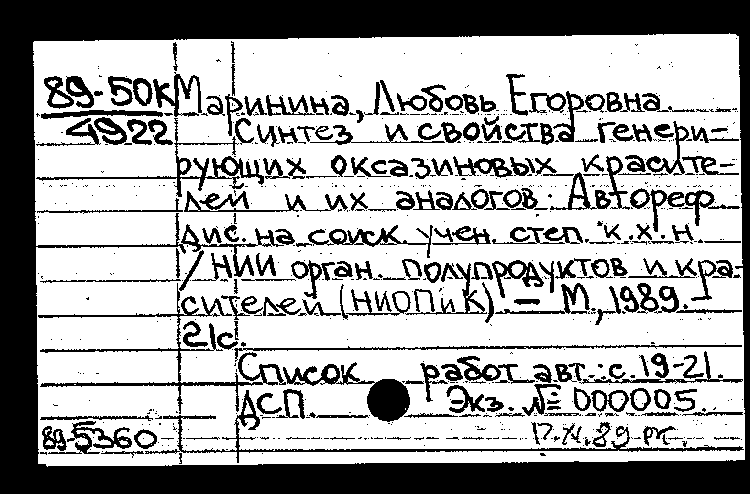 89-50К Маринина, Любовь Егоровна.
4922 Синтез и свойства генери-
рующих оксазиновых красите-
лей и их аналогов: Автореф.
дис. на соиск. учен. степ. к.х.н.
/НИИ орган. полупродуктов и кра-
сителей (НИОПиК). – М, 1989.–
21с.
Список работ авт.: с. 19-21.
ДСП. Экз. № 000005.
89-5360